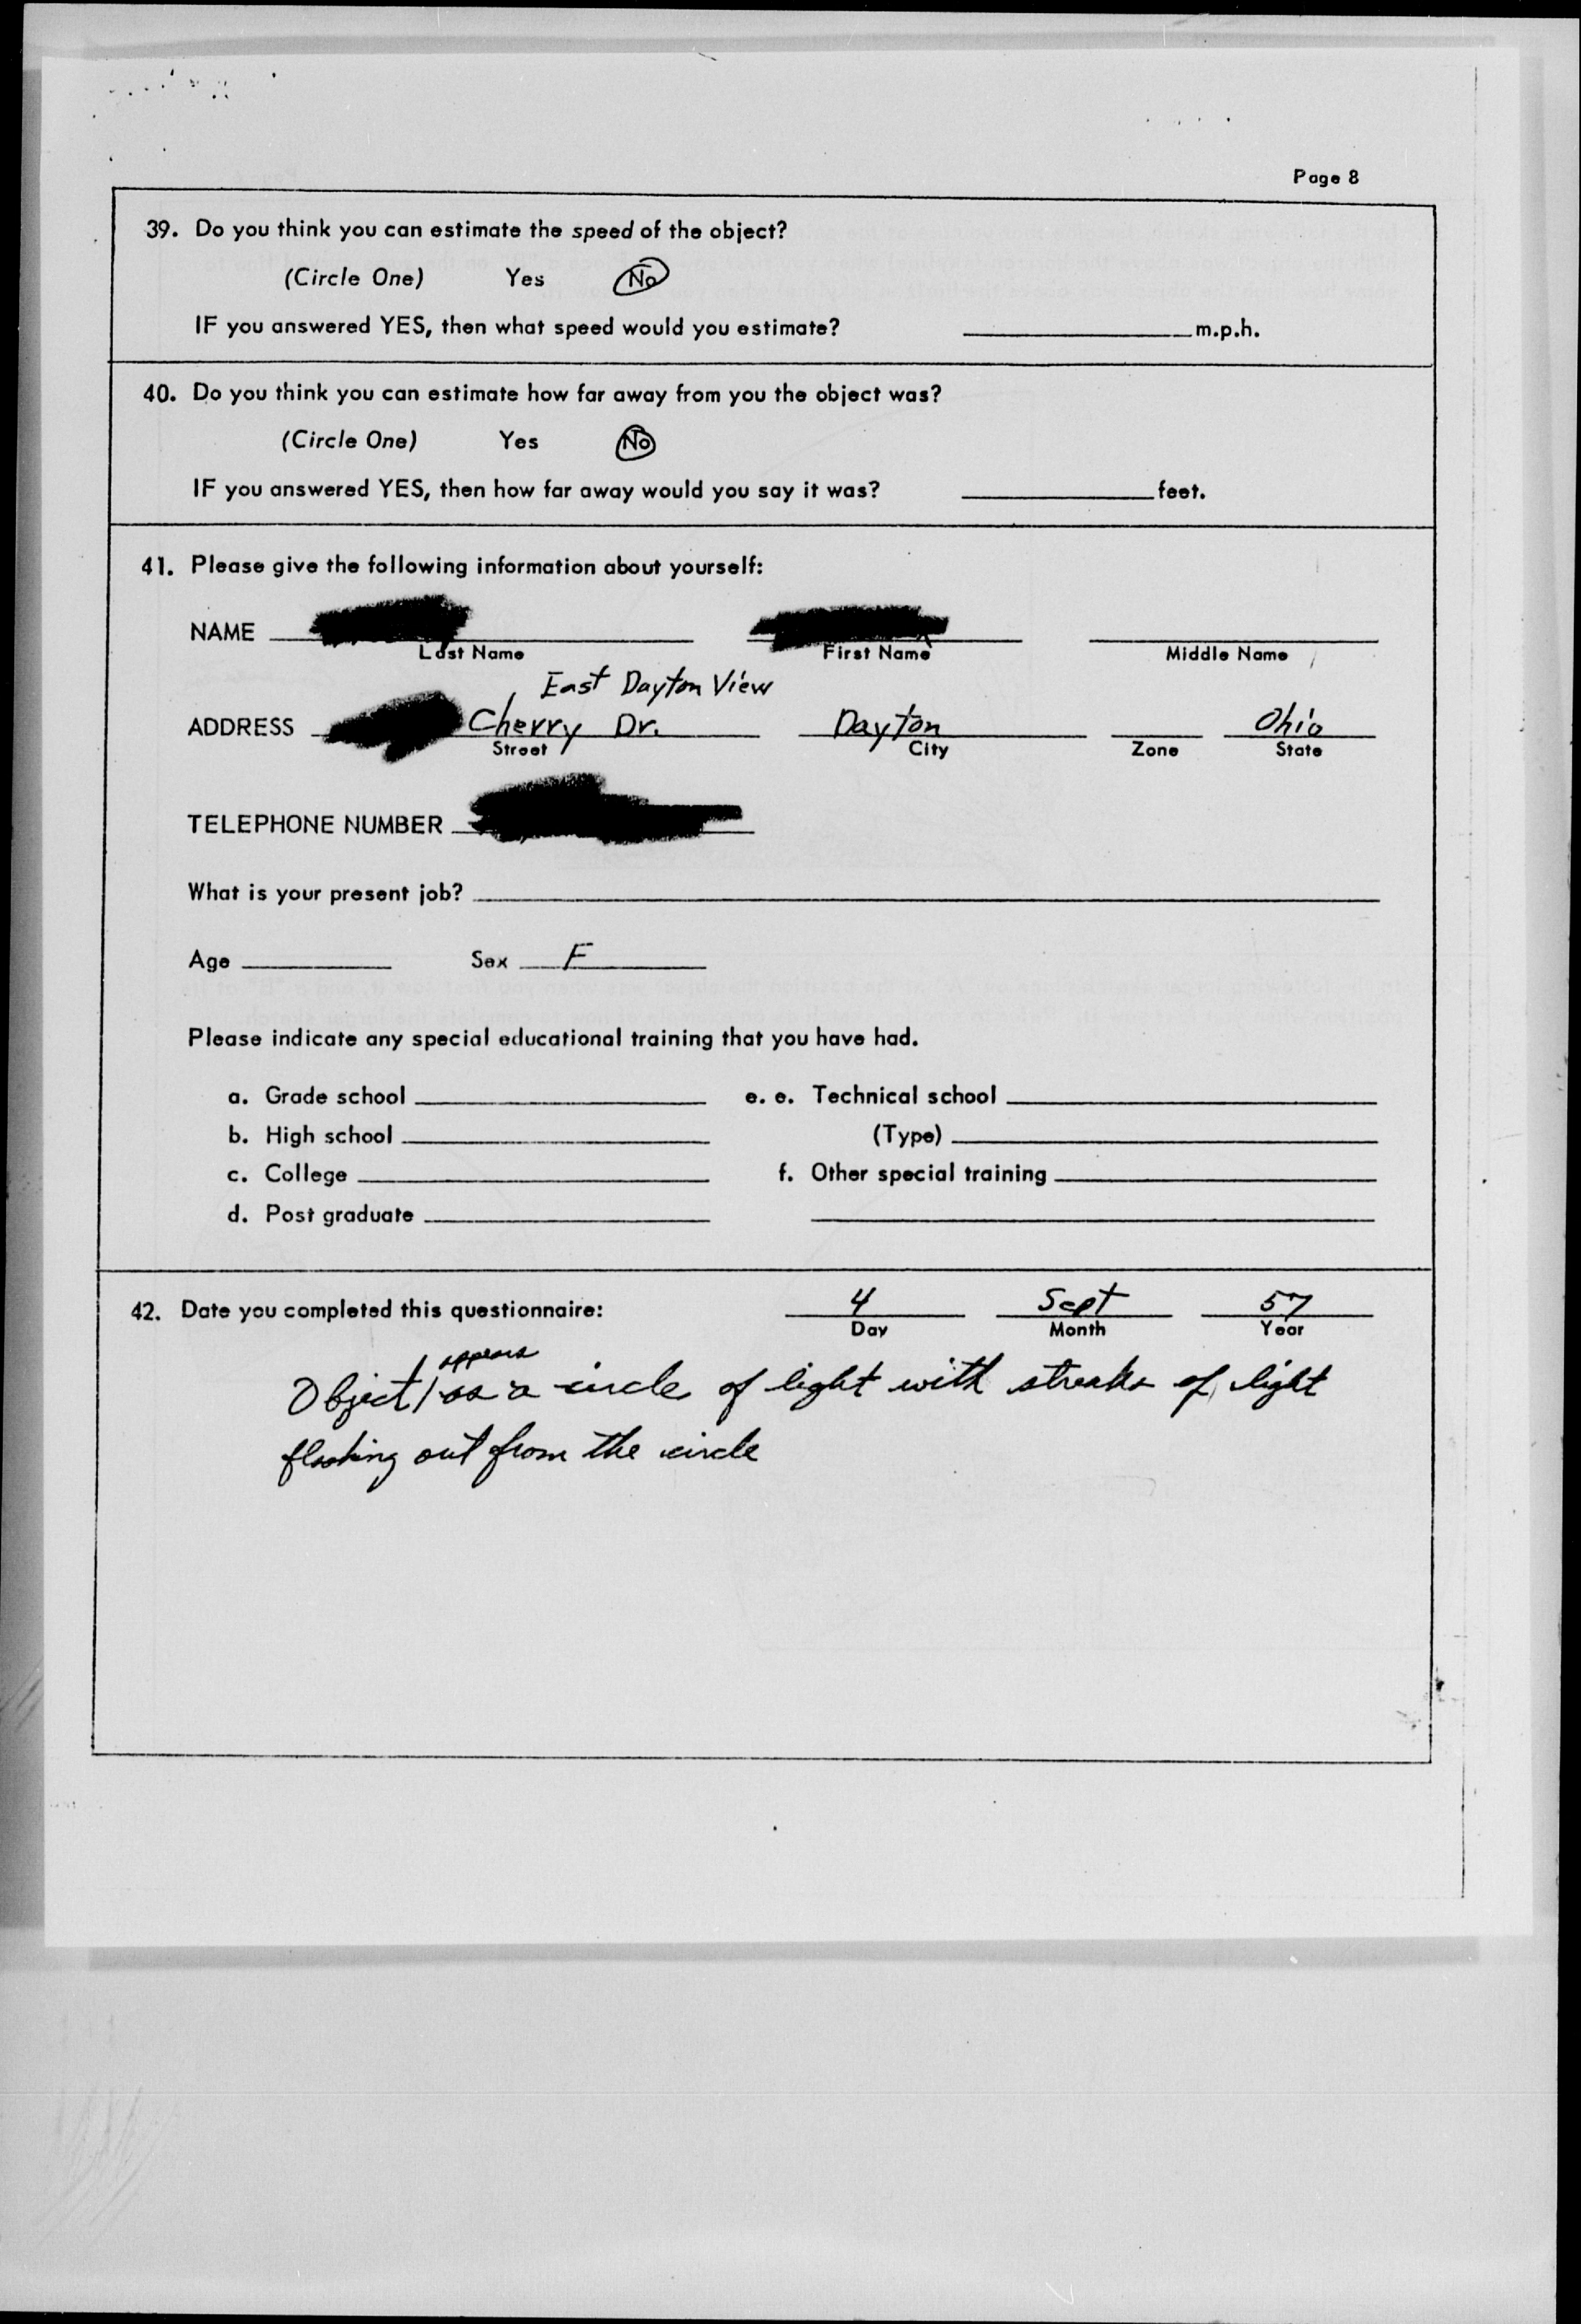 Page 8
39. Do you think you can estimate the speed of the object?
(Circle One) Yes No
IF you answered YES, then what speed would you estimate? m.p.h.
40. Do you think you can estimate how far away from you the object was?
(Circle One) Yes No
IF you answered YES, then how far away would you say it was? feet.
41. Please give the following information about yourself:
NAME
Last Name First Name Middle Name
East Dayton View
ADDRESS Cherry Dr. Dayton Ohio
Street City Zone State
TELEPHONE NUMBER
What is your present job?
Age Sex F
Please indicate any special educational training that you have had.
a. Grade school e. e. Technical school
b. High school (Type)
c. College f. Other special training
d. Post graduate
42. Date you completed this questionnaire: 4 Sept 57
Day Month Year
appears
Object as a circle of light with streaks of light
flashing out from the circle